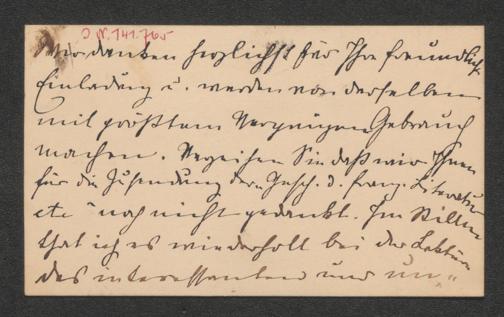 I. N. 141.765
Wir danken herzlichst für Ihre freundliche
Einladung u. werden von derselben
mit größtem Vergnügen Gebrauch
machen. Verzeihen Sie daß wir Ihnen
für die Zusendung der „Gesch. d. franz. Literatur
etc“ noch nicht gedankt. Im Stillen
that ich es wiederholt bei der Lektüre
des interessanten und un„